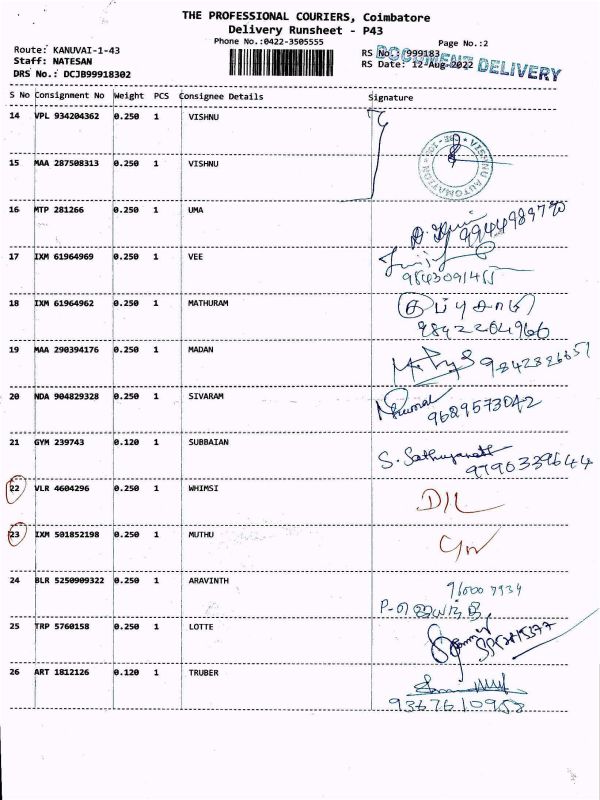 THE PROFESSIONAL COURIERS, Coimbatore
Delivery Runsheet - P43
Phone No.:0422-3505555
Page No.:2
Route: KANUVAI-1-43
Staff: NATESAN
DRS No.: DCJB99918302
RS No.: 999183
RS Date: 12-Aug-2022
DOCUMENT DELIVERY
S No Consignment No Weight PCS Consignee Details Signature
14 VPL 934204362 0.250 1 VISHNU
15 MAA 287508313 0.250 1 VISHNU
VISHNU AUTOMATION
16 MTP 281266 0.250 1 UMA
17 IXM 61964969 0.250 1 VEE
18 IXM 61964962 0.250 1 MATHURAM
9842204966
19 MAA 290394176 0.250 1 MADAN
20 NDA 904829328 0.250 1 SIVARAM
9689573042
21 GYM 239743 0.120 1 SUBBAIAN
S. Sathyanath
9790339644
22 VLR 4604296 0.250 1 WHIMSI
D/L
23 IXM 501852198 0.250 1 MUTHU
24 BLR 5250909322 0.250 1 ARAVINTH
25 TRP 5760158 0.250 1 LOTTE
26 ART 1812126 0.120 1 TRUBER
9367610958